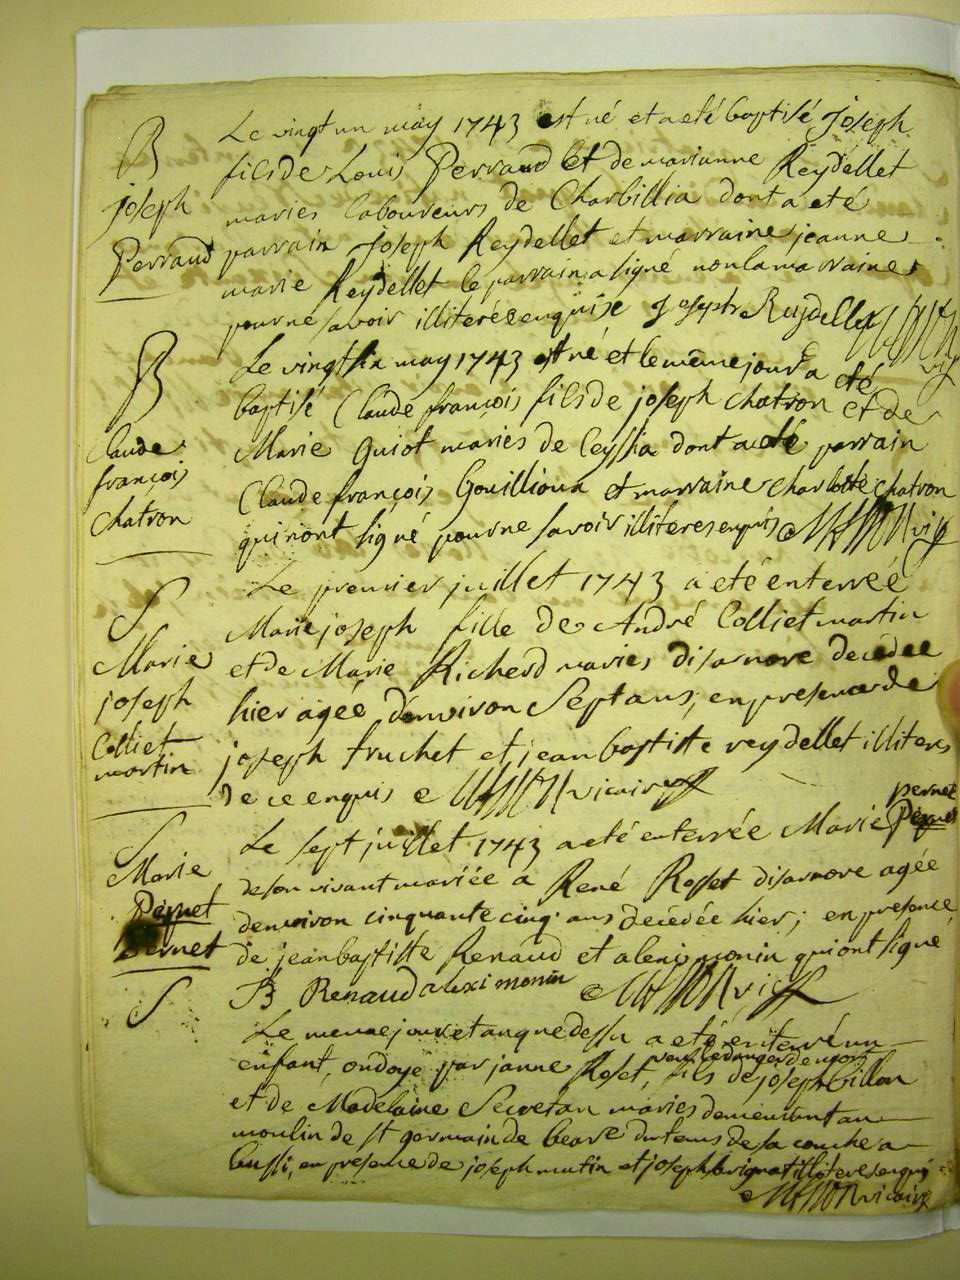 B
joseph
Perraud
Le vingt un may 1743 est né et a eté baptisé Joseph
fils de Louis Perraud et de marianne Reydellet
mariés laboureurs de Charbillia dont a eté
parrain Joseph Reydellet et marraine jeanne
marie Reydellet le parrain a signé non la marraine
pour ne savoir illiterée enquise Joseph Reydellet
vic
B
Claude
françois
chatron
Le vingt six may 1743 est né et le même jour a eté
baptisé Claude françois fils de joseph chatron et de
Marie Guiot mariés de Ceyssia dont a eté parrain
Claude françois Gouillioux et marraine charlotte chatron
qui n'ont signé pour ne savoir illiteres enquis vic
S
Marie
joseph
Colliet
martin
Le premier juillet 1743 a eté enterreé
Marie joseph fille de André Colliet martin
et de Marie Richerd mariés disarnore decedee
hier ageé d'environ Sept ans, en presence de
joseph fruchet et jean baptiste reydellet illiteres
de ce enquis vicaire
S
Marie
Pernet
Le sept juillet 1743 a eté enterrée Marie pernet
de son vivant mariée a René Rosset disarnore agée
d'environ cinquante cinq ans decédée hier; en presence
de jean baptiste Renaud et alexis monin qui ont signé
JB Renaud alexi monin vic
S
Le meme jour et an que dessu a eté enterré un
enfant, ondoye par janne Roset, veu le danger de mort
fils de joseph billon
et de Madelaine Secretan mariés demeurant au
moulin de st germain de beare du tems de sa couche a
bussi, en presence de joseph mutin et joseph brignat illiteres enquis
vicaire